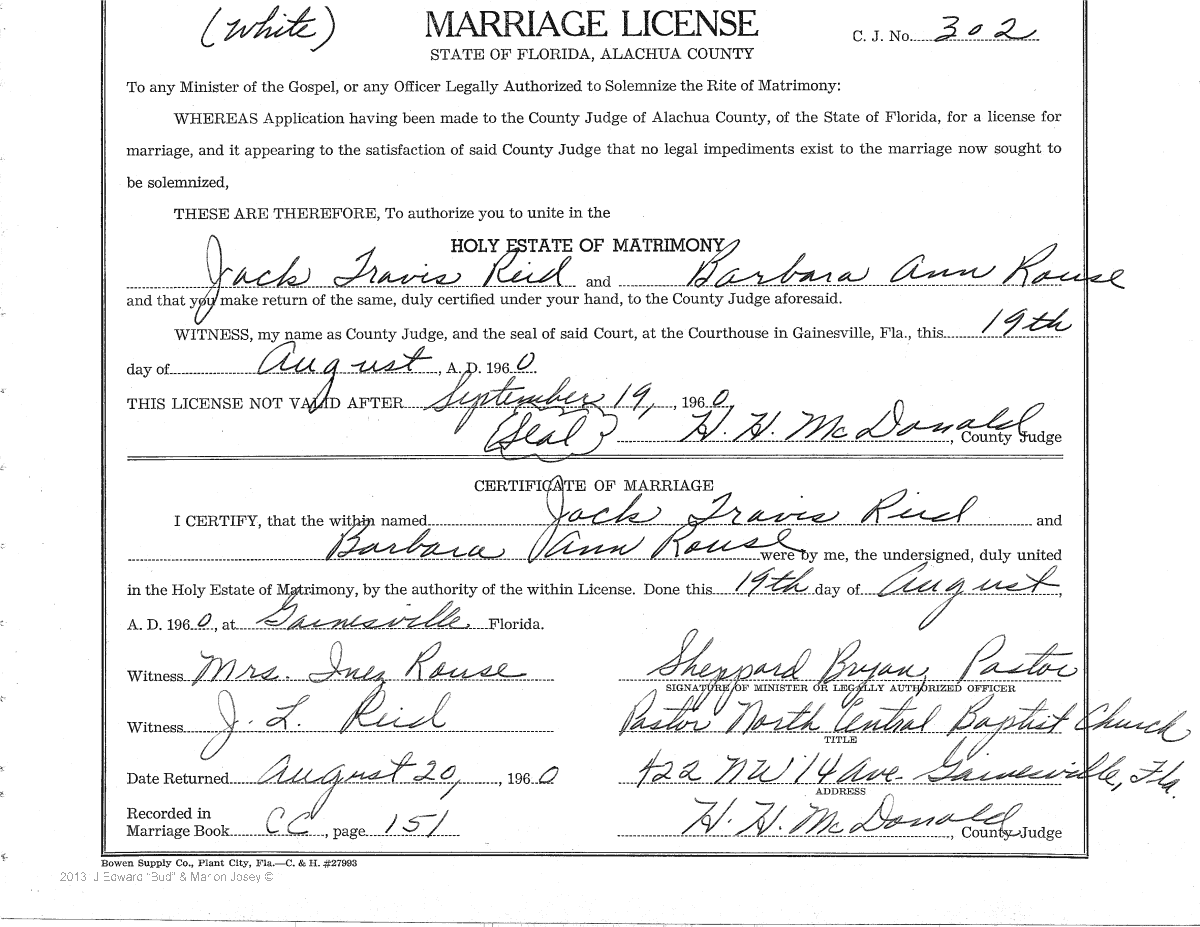 (White)
MARRIAGE LICENSE
C. J. No. 302
STATE OF FLORIDA, ALACHUA COUNTY
To any Minister of the Gospel, or any Officer Legally Authorized to Solemnize the Rite of Matrimony:
WHEREAS Application having been made to the County Judge of Alachua County, of the State of Florida, for a license for
marriage, and it appearing to the satisfaction of said County Judge that no legal impediments exist to the marriage now sought to
be solemnized,
THESE ARE THEREFORE, To authorize you to unite in the
HOLY ESTATE OF MATRIMONY
Jack Travis Reid and Barbara Ann Rouse
and that you make return of the same, duly certified under your hand, to the County Judge aforesaid.
WITNESS, my name as County Judge, and the seal of said Court, at the Courthouse in Gainesville, Fla., this 19th
day of August, A. D. 1960.
THIS LICENSE NOT VALID AFTER September 19, , 1960,
(Seal) H. H. McDonald, County Judge
CERTIFICATE OF MARRIAGE
I CERTIFY, that the within named Jack Travis Reid and
Barbara Ann Rouse were by me, the undersigned, duly united
in the Holy Estate of Matrimony, by the authority of the within License. Done this 19th day of August,
A. D. 1960, at Gainesville Florida.
Witness Mrs. Inez Rouse Sheppard Bryan, Pastor
SIGNATURE OF MINISTER OR LEGALLY AUTHORIZED OFFICER
Witness J. L. Reid Pastor North Central Baptist Church
TITLE
Date Returned August 20, , 1960 422 NW 14 Ave. Gainesville, Fla.
ADDRESS
Recorded in
Marriage Book CC, page 151 H. H. McDonald, County Judge
Bowen Supply Co., Plant City, Fla.—C. & H. #27993
2013 J Edward "Bud" & Marion Josey ©